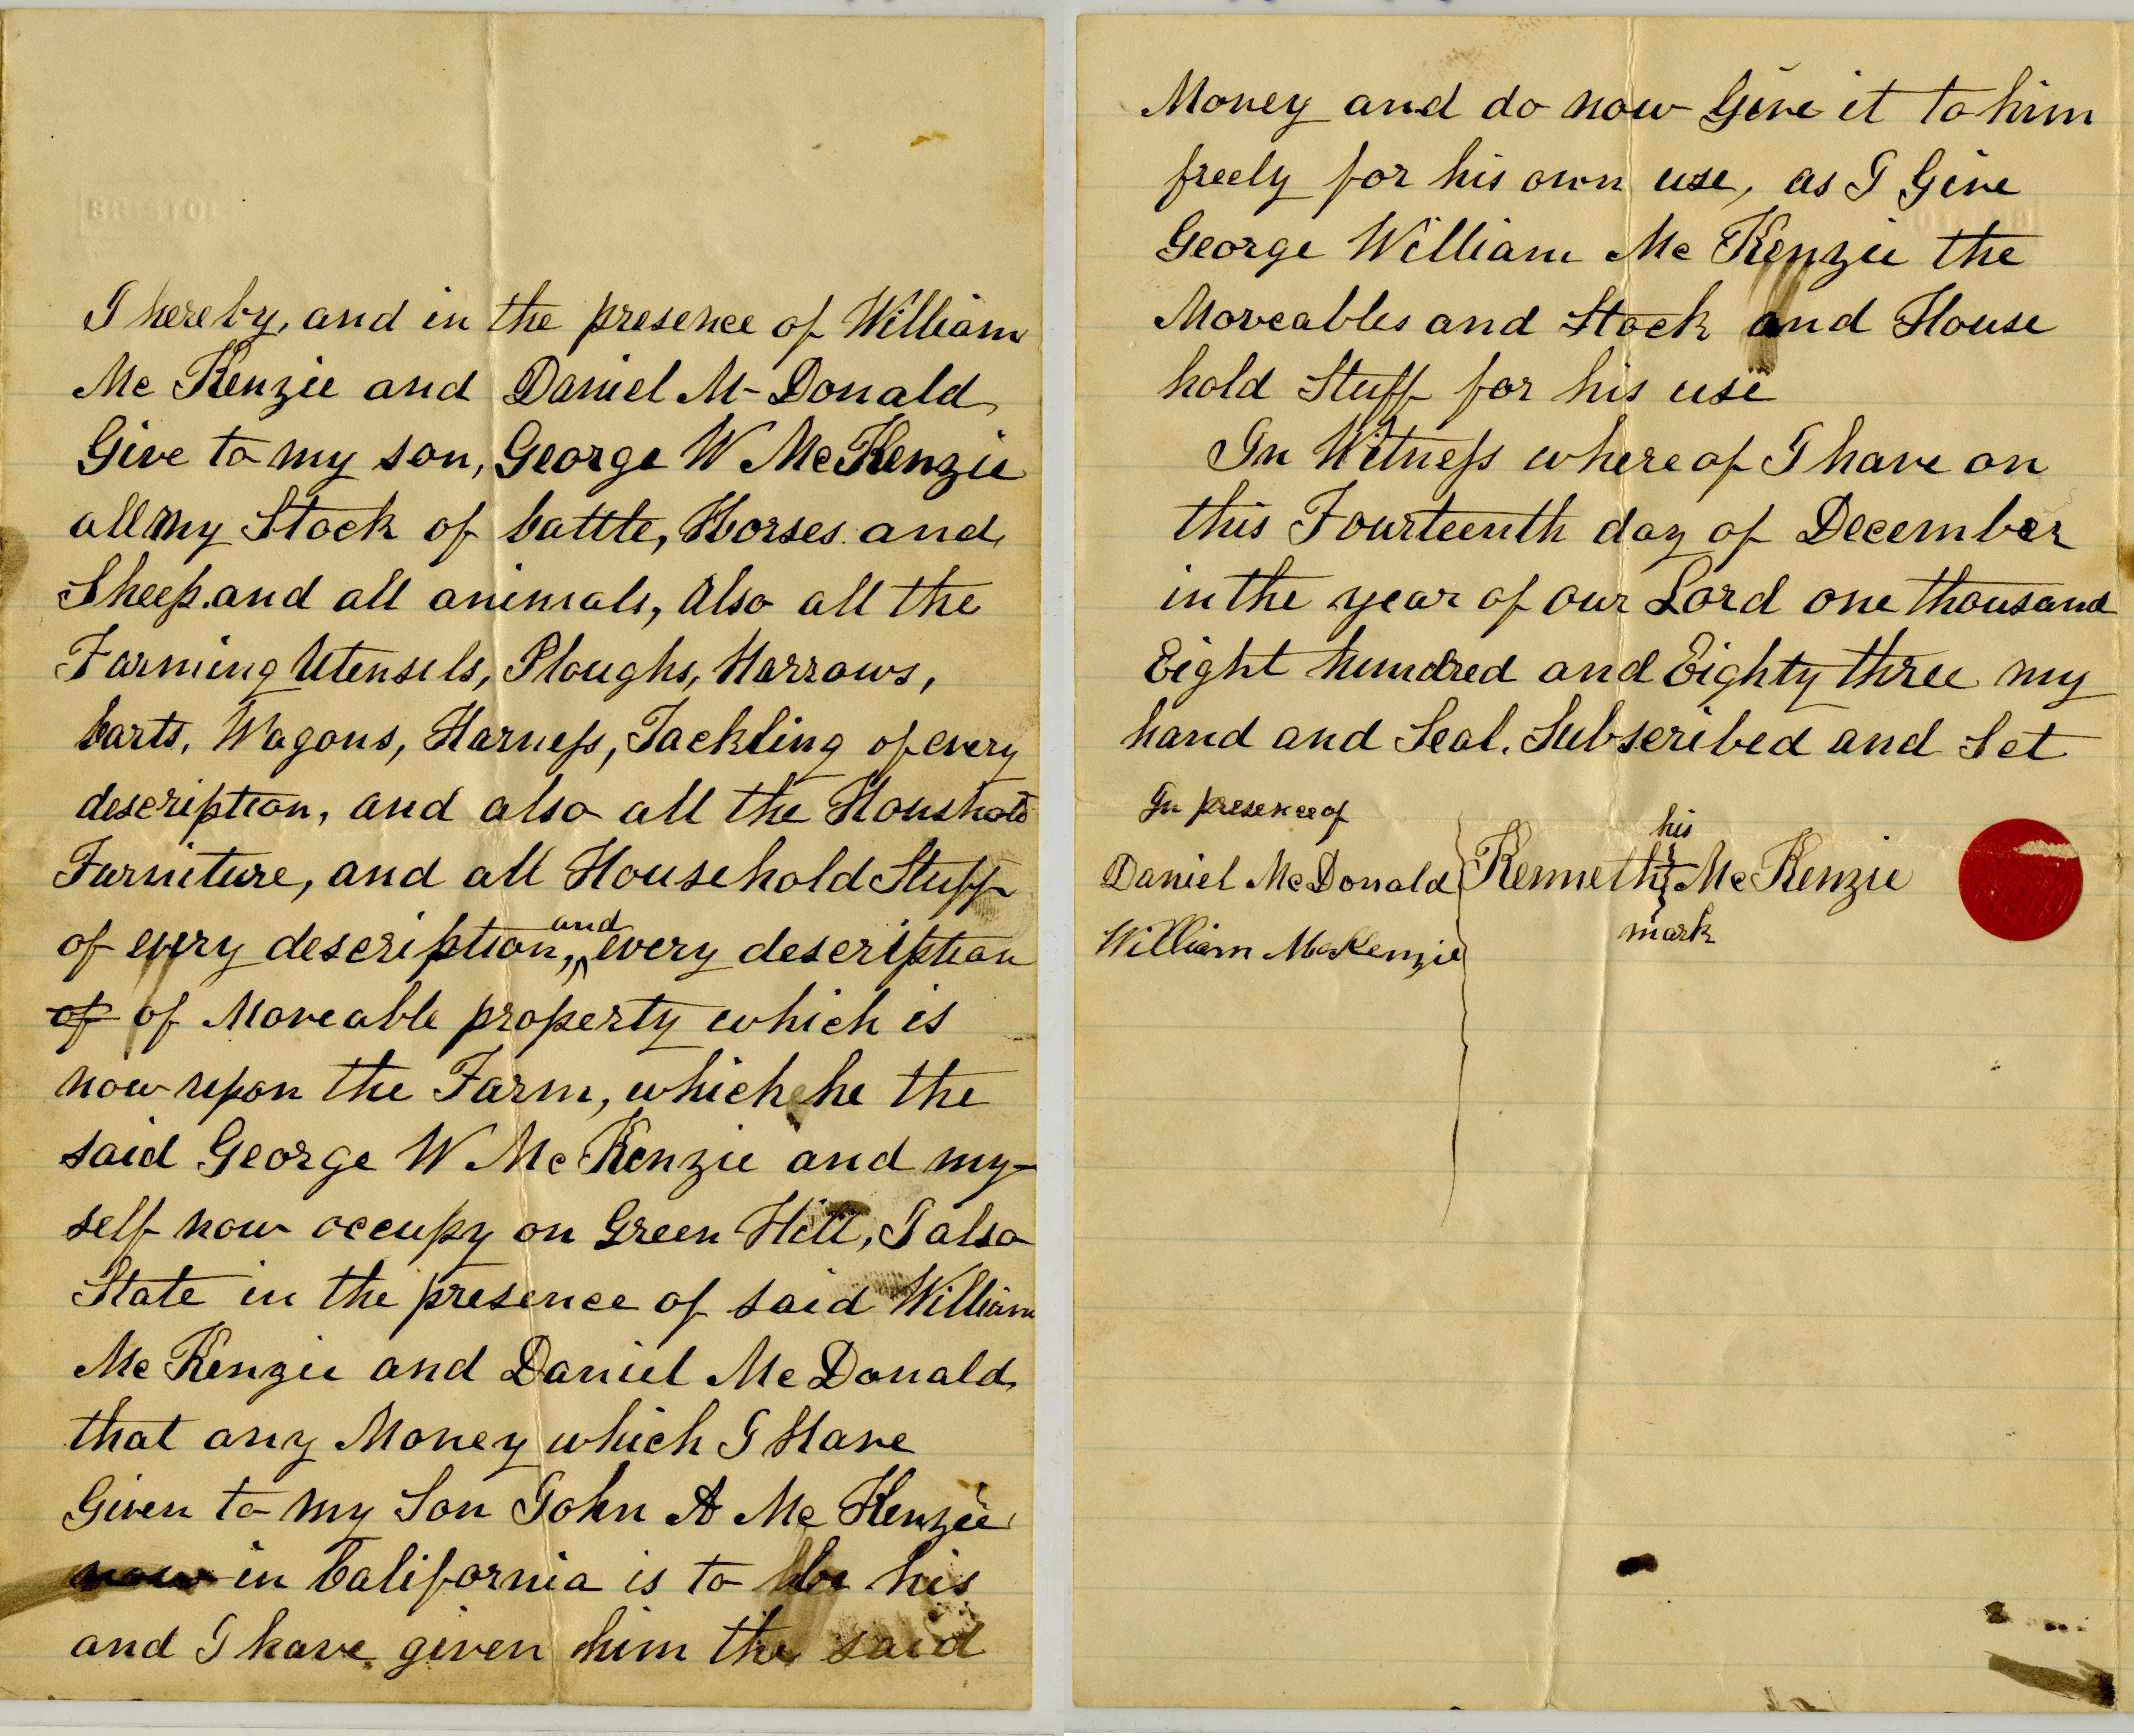 BRISTOL
I hereby, and in the presence of William
Mc Kenzie and Daniel Mc Donald
Give to my son, George W McKenzie
all my Stock of Cattle, Horses and
Sheep. and all animals, Also all the
Farming Utensils, Ploughs, Harrows,
Carts, Wagons, Harness, Tackling of every
description, and also all the Houshold
Furniture, and all Household Stuff
of every description, and every description
of of Moveable property which is
now upon the Farm, which he the
said George W Mc Kenzie and my-
self now occupy on Green Hill, I also
State in the presence of said William
Mc Kenzie and Daniel Mc Donald
that any Money which I Have
Given to my Son John A Mc Kenzie
now in California is to be his
and I have given him the said
Money and do now Give it to him
freely for his own use, as I Give
George William Mc Kenzie the
Moveables and Stock and House
hold Stuff for his use
In Witness where of I have on
this Fourteenth day of December
in the year of our Lord one thousand
Eight hundred and Eighty three my
hand and Seal. Subscribed and Set
In presence of
Daniel McDonald
William McKenzie
his
Kenneth Mc Kenzie
mark